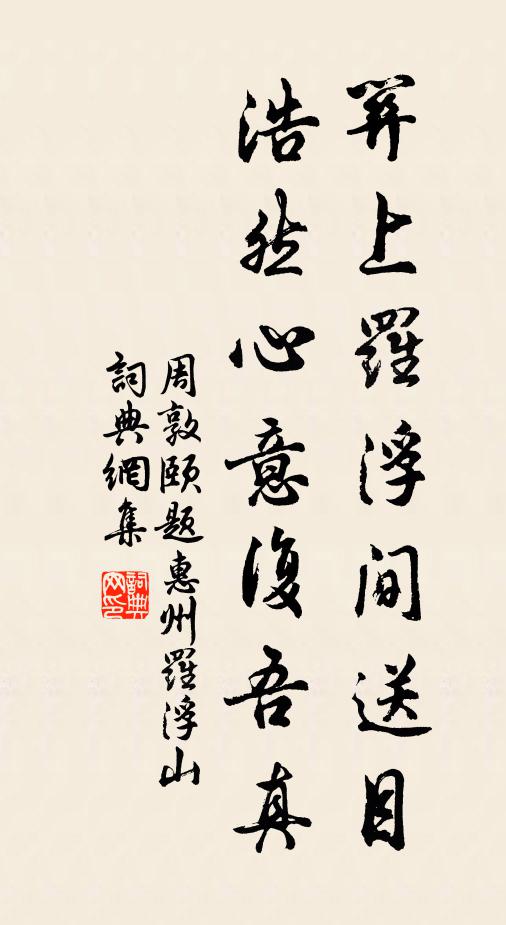 上羅浮间送目
浩然心意復吾真
周敦颐题惠州羅浮山
詞典網集
詞典网印